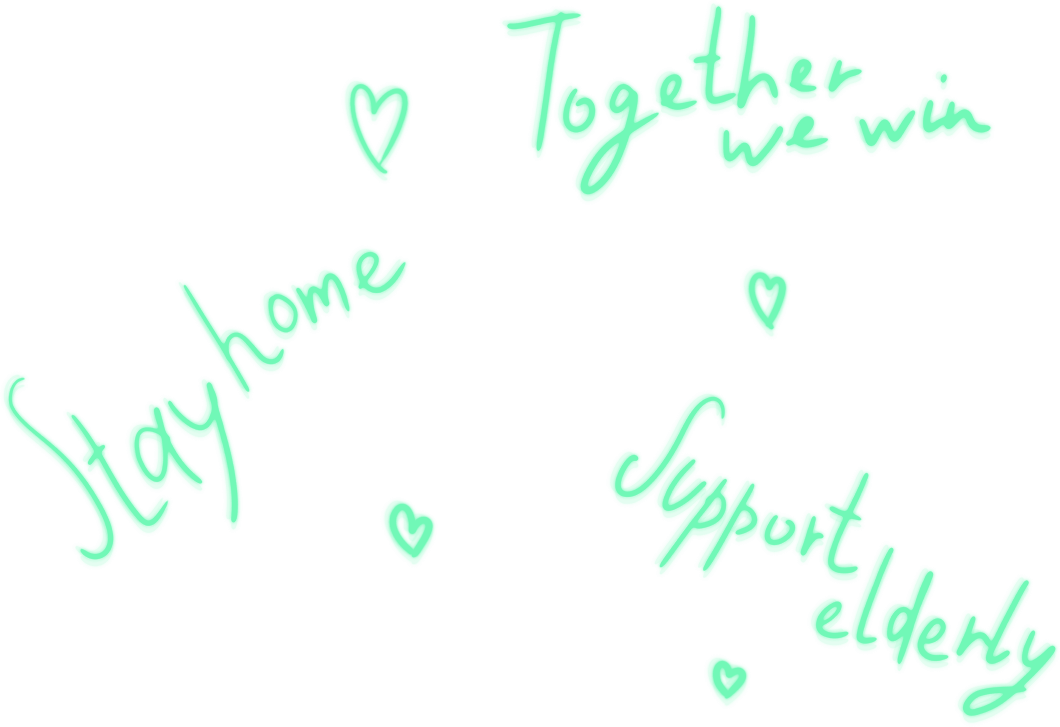 Together
we win
Stay home
Support
elderly